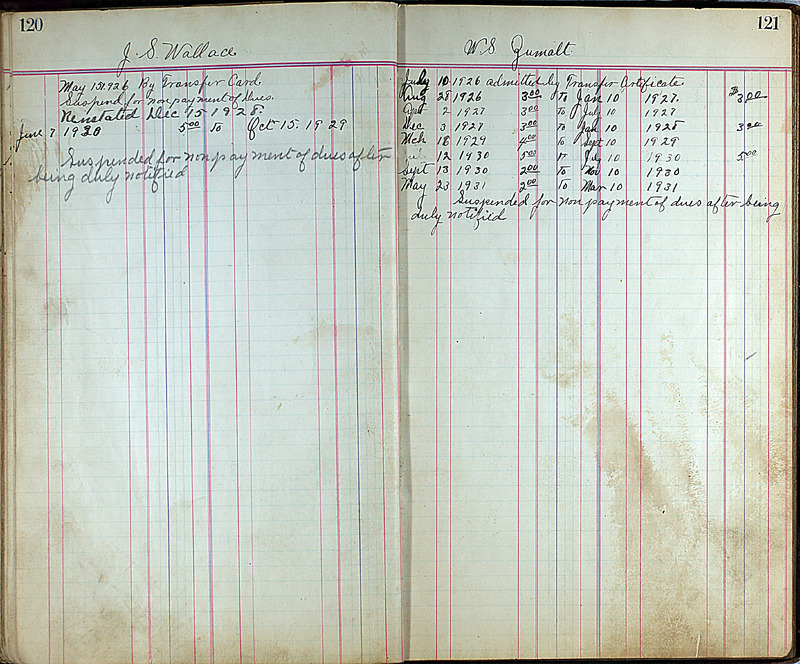 120
J. S. Wallace
May 15 1926 By Transfer Card
Suspend for nonpayment of Dues.
Renstated Dec 15 1928
June 7 1930 5 00 To Oct 15. 1929
Suspended for non pay ment of dues after
being duly notified
121
W. S. Zumalt
July 10 1926 admitted by Transfer Certificate
Aug 28 1926 3 00 To Jan 10 1927. $3.00
2 1927 3 00 To July 10 1927
Dec 3 1927 3 00 To Jan 10 1928 3 00
Mch 18 1929 4 00 To Sept 10 1929
12 1930 5 00 July 10 1930 5 00
Sept 13 1930 2 00 To Nov 10 1930
May 23 1931 2 00 To Mar 10 1931
Suspended for non payment of dues after being
duly notified